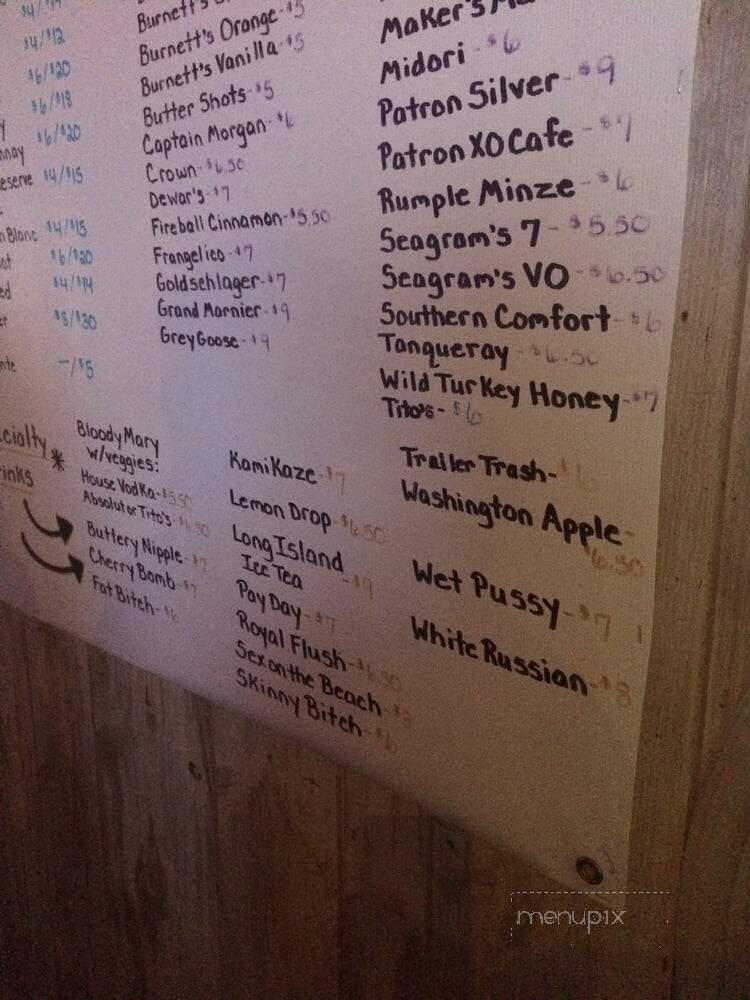 $4/$12
$6/$20
$6/$18
$6/$20
nnay
eserve $4/$15
n Blanc $4/$15
$6/$20
ed $4/$14
er $8/$30
—/$5
Burnett's
Burnett's Orange-$5
Burnett's Vanilla-$5
Butter Shots-$5
Captain Morgan-$6
Crown-$6.50
Dewar's-$7
Fireball Cinnamon-$5.50
Frangelico-$7
Goldschlager-$7
Grand Marnier-$9
Grey Goose-$9
Maker's Ma
Midori-$6
Patron Silver-$9
Patron XO Cafe-
Rumple Minze-$6
Seagram's 7-$5.50
Seagram's VO-$6.50
Southern Comfort-$6
Tanqueray-$6.50
Wild Turkey Honey-$7
Tito's-$6
ecialty
rinks
*
Bloody Mary
w/veggies:
House Vodka-$5.50
Absolut or Tito's-$6.50
Buttery Nipple-$7
Cherry Bomb-$7
Fat Bitch-$6
Kamikaze-$7
Lemon Drop-$6.50
Long Island
Ice Tea-$9
Pay Day-$7
Royal Flush-$6.50
Sex on the Beach-$8
Skinny Bitch-$6
Trailer Trash-
Washington Apple-
$6.50
Wet Pussy-$7
White Russian-$8
menupix